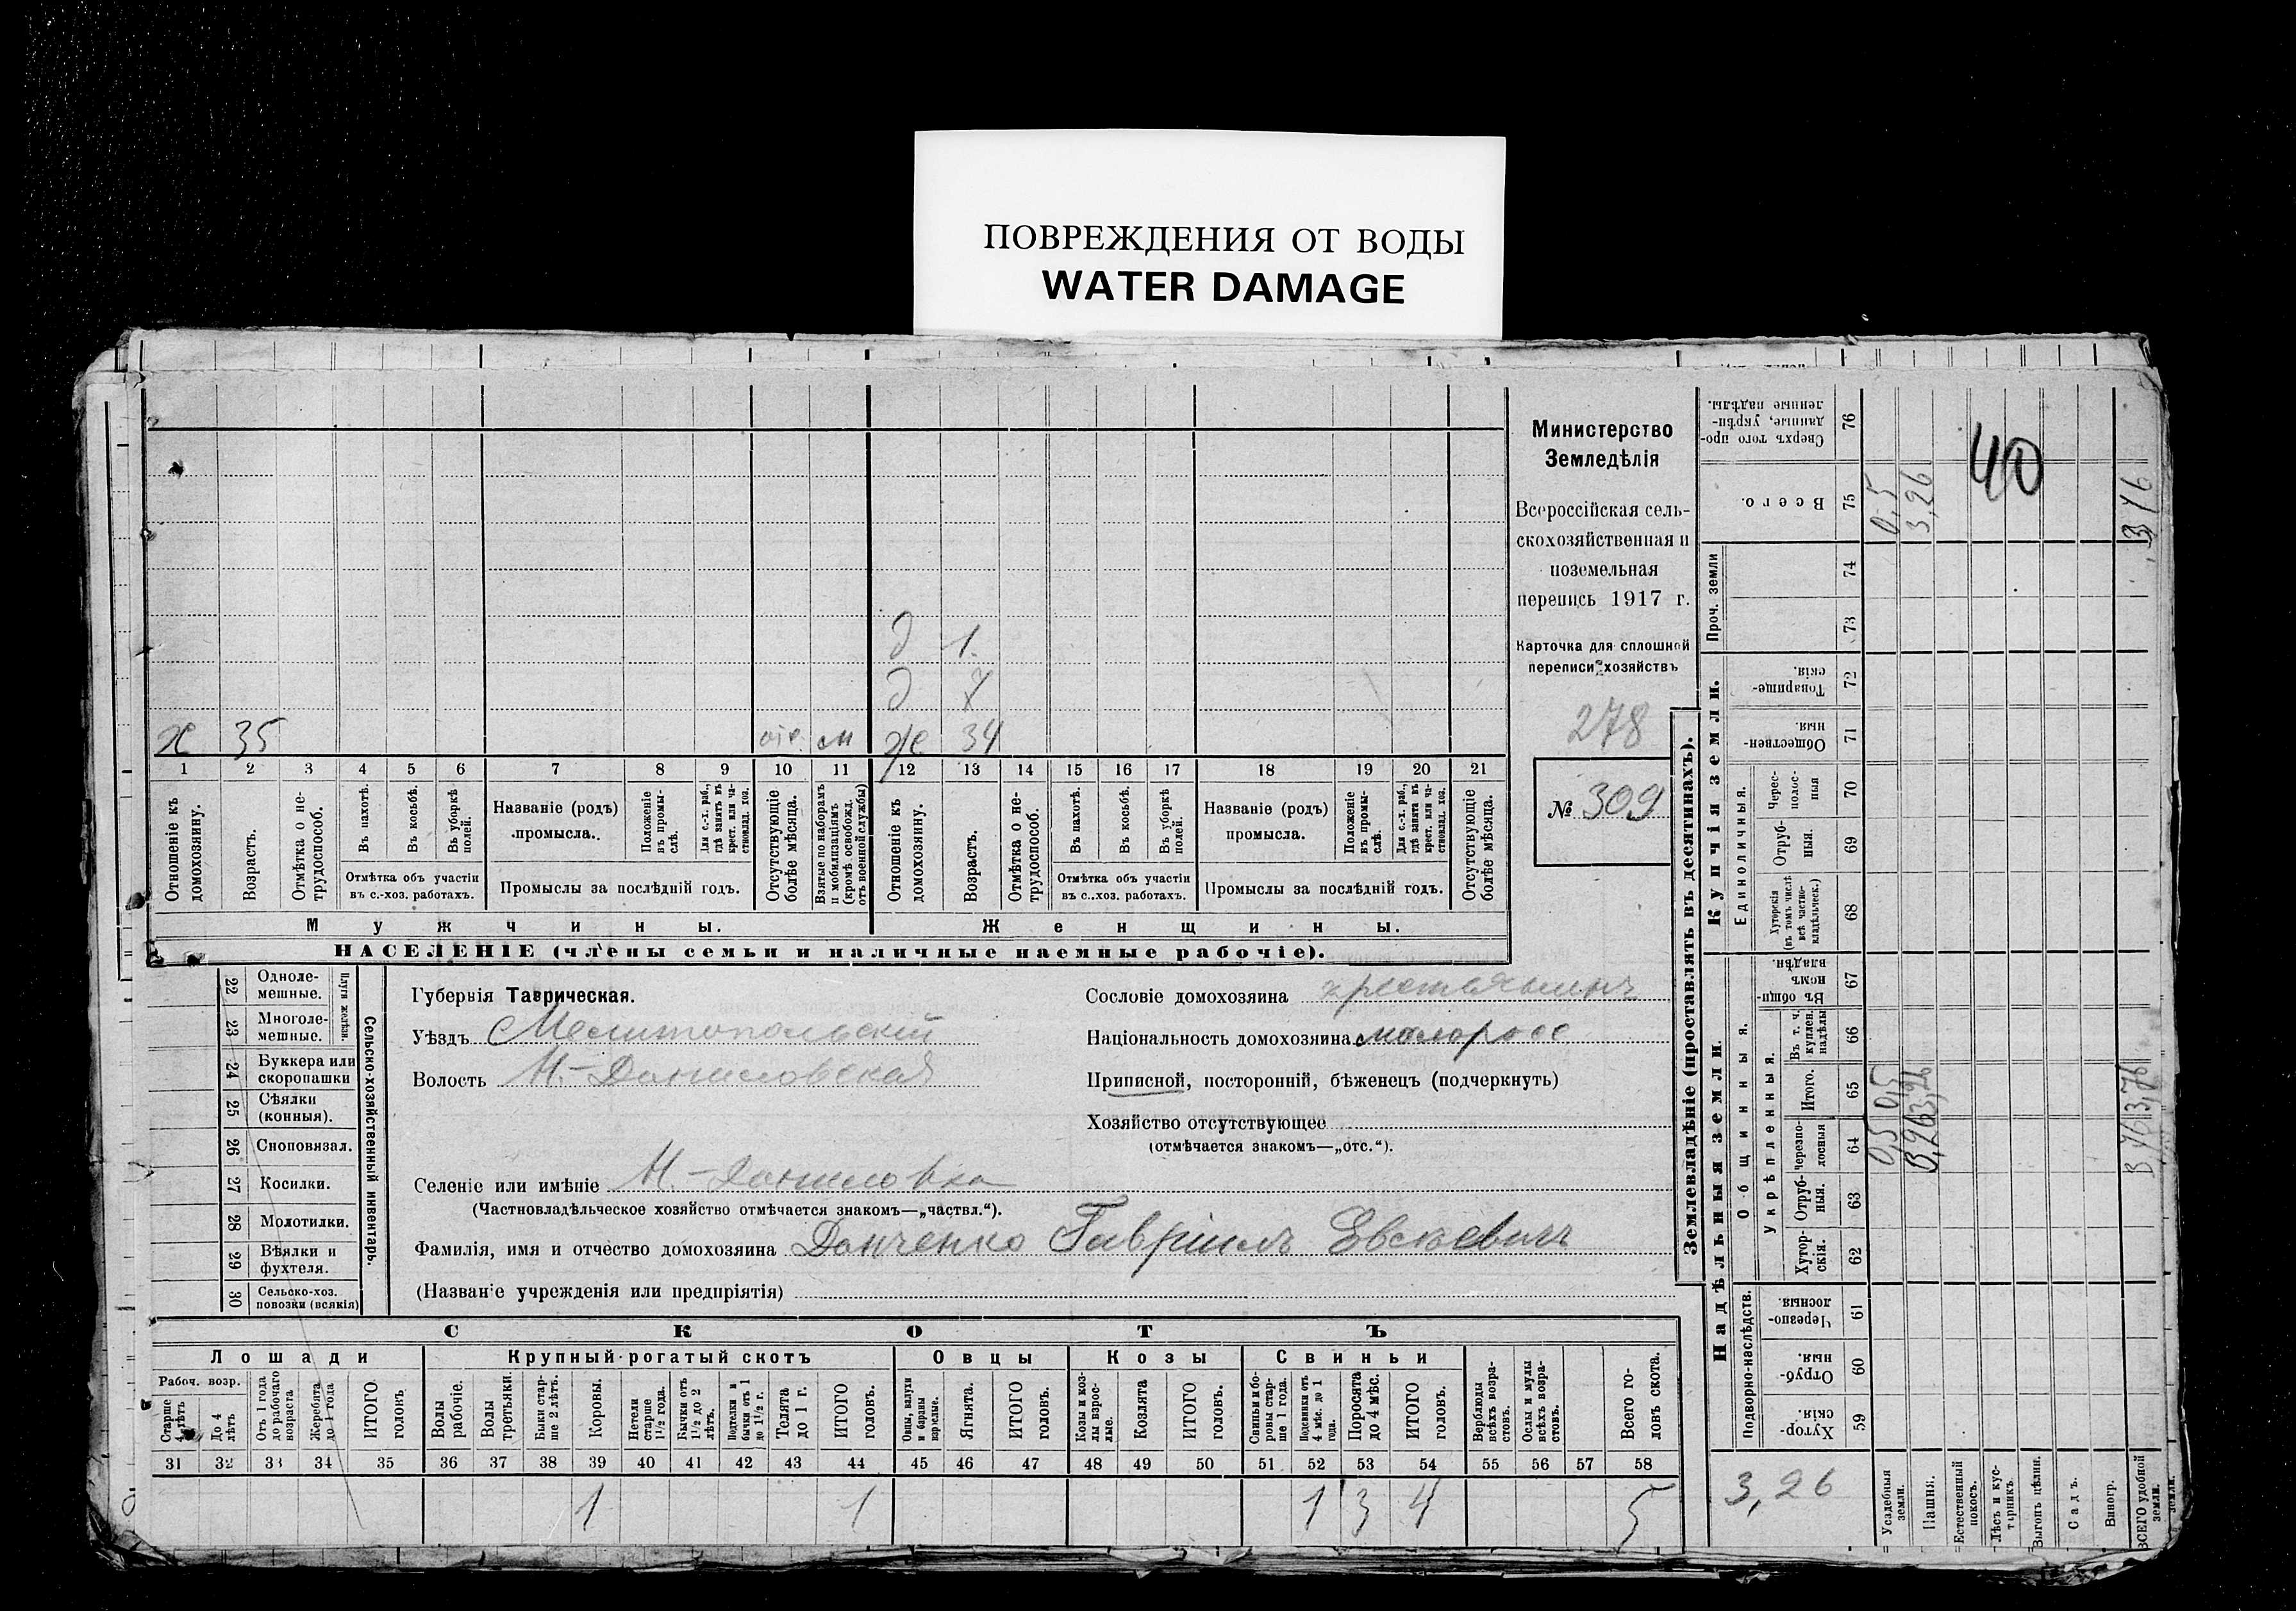 ПОВРЕЖДЕНИЯ ОТ ВОДЫ
WATER DAMAGE
Министерство
Земледѣлія
Всероссійская сель-
скохозяйственная и
поземельная
перепись 1917 г.
Карточка для сплошной
переписи хозяйствъ
278
№ 309
д 1.
д 7
х 35 отс. м ж 34
1 2 3 4 5 6 7 8 9 10 11 12 13 14 15 16 17 18 19 20 21
Отношеніе къ домохозяину.
Возрастъ.
Отмѣтка о не-трудоспособ.
Въ пахотѣ.
Въ косьбѣ.
Въ уборкѣ полей.
Отмѣтка объ участіи
въ с.-хоз. работахъ.
Названіе (родъ)
промысла.
Положеніе въ промы-слѣ.
Для с.-х. раб., гдѣ занятъ въ крест. или ча-стновлад. хоз.
Промыслы за послѣдній годъ.
Отсутствующіе болѣе мѣсяца.
Взятые по наборамъ и мобилизаціямъ (кромѣ освобожд. отъ военной службы)
Отношеніе къ домохозяину.
Возрастъ.
Отмѣтка о не-трудоспособ.
Въ пахотѣ.
Въ косьбѣ.
Въ уборкѣ полей.
Отмѣтка объ участіи
въ с.-хоз. работахъ.
Названіе (родъ)
промысла.
Положеніе въ промы-слѣ.
Для с.-х. раб., гдѣ занятъ въ крест. или ча-стновлад. хоз.
Промыслы за послѣдній годъ.
Отсутствующіе болѣе мѣсяца.
Мужчины. Женщины.
НАСЕЛЕНІЕ (члены семьи и наличные наемные рабочіе).
Сельско-хозяйственный инвентарь.
Плуги желѣзн.
22 Одноле-мешные.
23 Многоле-мешные.
24 Буккера или скоропашки
25 Сѣялки (конныя).
26 Сноповязал.
27 Косилки.
28 Молотилки.
29 Вѣялки и фухтеля.
30 Сельско-хоз. повозки (всякія)
Губернія Таврическая.
Уѣздъ Мелитопольскій
Волость Н.-Даниловская
Сословіе домохозяина крестьянинъ
Національность домохозяина малоросс
Приписной, посторонній, бѣженецъ (подчеркнуть)
Хозяйство отсутствующее
(отмѣчается знакомъ—„отс.“).
Селеніе или имѣніе Н.-Даниловка
(Частновладѣльческое хозяйство отмѣчается знакомъ—„частвл.“).
Фамилія, имя и отчество домохозяина Данченко Гавріилъ Евсѣевичъ
(Названіе учрежденія или предпріятія)
СКОТЪ
Лошади Крупный рогатый скотъ Овцы Козы Свиньи
Рабоч. возр.
Старше 4 лѣтъ
До 4 лѣтъ
Отъ 1 года до рабочаго возраста
Жеребята до 1 года
ИТОГО головъ
Волы рабочіе.
Волы третьяки.
Быки стар-ше 2 лѣтъ.
Коровы.
Нетели старше 1½ года.
Бычки отъ 1½ до 2 лѣтъ.
Подтелки и бычки отъ 1 до 1½ г.
Телята до 1 г.
ИТОГО головъ.
Овцы, валухи и бараны взрослые.
Ягнята.
ИТОГО головъ.
Козы и коз-лы взрос-лые.
Козлята
ИТОГО головъ.
Свиньи и бо-ровы стар-ше 1 года.
Подсвинки отъ 4 мѣс. до 1 года.
Поросята до 4 мѣс.
ИТОГО головъ.
Верблюды всѣхъ возра-стовъ.
Ослы и мулы всѣхъ возра-стовъ.
Всего го-ловъ скота.
31 32 33 34 35 36 37 38 39 40 41 42 43 44 45 46 47 48 49 50 51 52 53 54 55 56 57 58
1 1 1 3 4 5
Землевладѣніе (проставлять въ десятинахъ).
Надѣльныя земли. Купчія земли. Проч. земли
Подворно-наслѣдств. Общинныя. Укрѣпленныя. Единоличныя.
Хутор-скія. 59
Отруб-ныя. 60
Черезпо-лосныя. 61
Хутор-скія. 62
Отруб-ныя. 63
Черезпо-лосныя 64
Итого. 65
Въ т. ч. куплен. надѣлы 66
Въ общи-номъ владѣн. 67
Хуторскія (въ томъ числѣ всѣ частно-владѣльческ.) 68
Отруб-ныя. 69
Черес-полос-ныя 70
Обществен-ныя. 71
Товарище-скія. 72
73
74
Всего. 75
Сверхъ того про-данные, укрѣп-ленные надѣлы. 76
40
Усадебныя земли. 0,5 0,5 0,5
Пашня. 3,26 3,26 3,26
Естественный покосъ.
Лѣсъ и кус-тарникъ.
Выгонъ цѣлин.
Садъ.
Виногр.
ВСЕГО удобной земли. 3,76 3,76 3,76
3,26